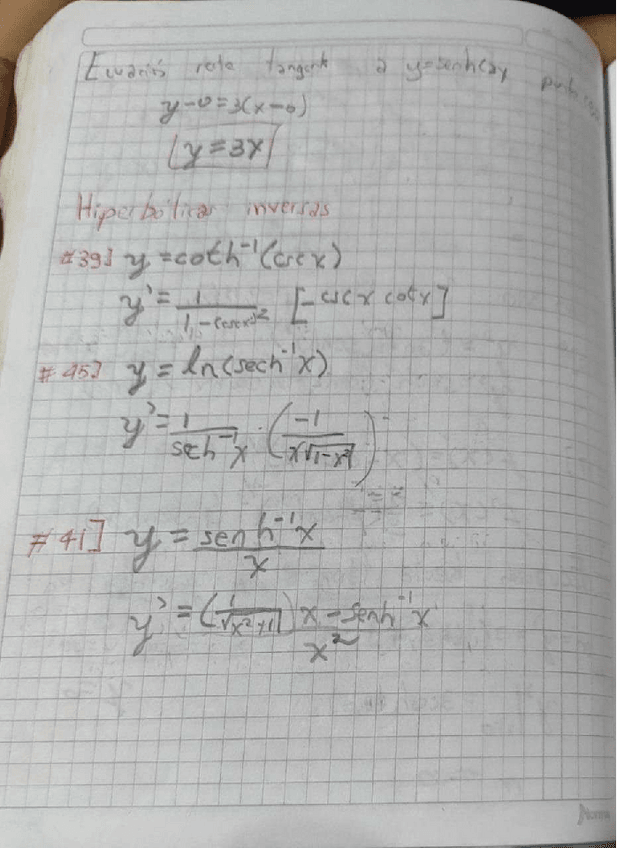 recta tangente a y=senh(3x
y-0=3(x-0)
y=3x
Hiperbólicas inversas
#39] y=coth⁻¹(csc x)
y'= 1/(1-(csc x)²) [-csc x cot x]
#45] y = ln(sech⁻¹x)
y'= 1/(sech⁻¹x) · (-1/(x√(1-x²)))
#41] y = senh⁻¹x/x
y' = ((1/√(x²+1)) x - senh⁻¹x)/x²
Norma